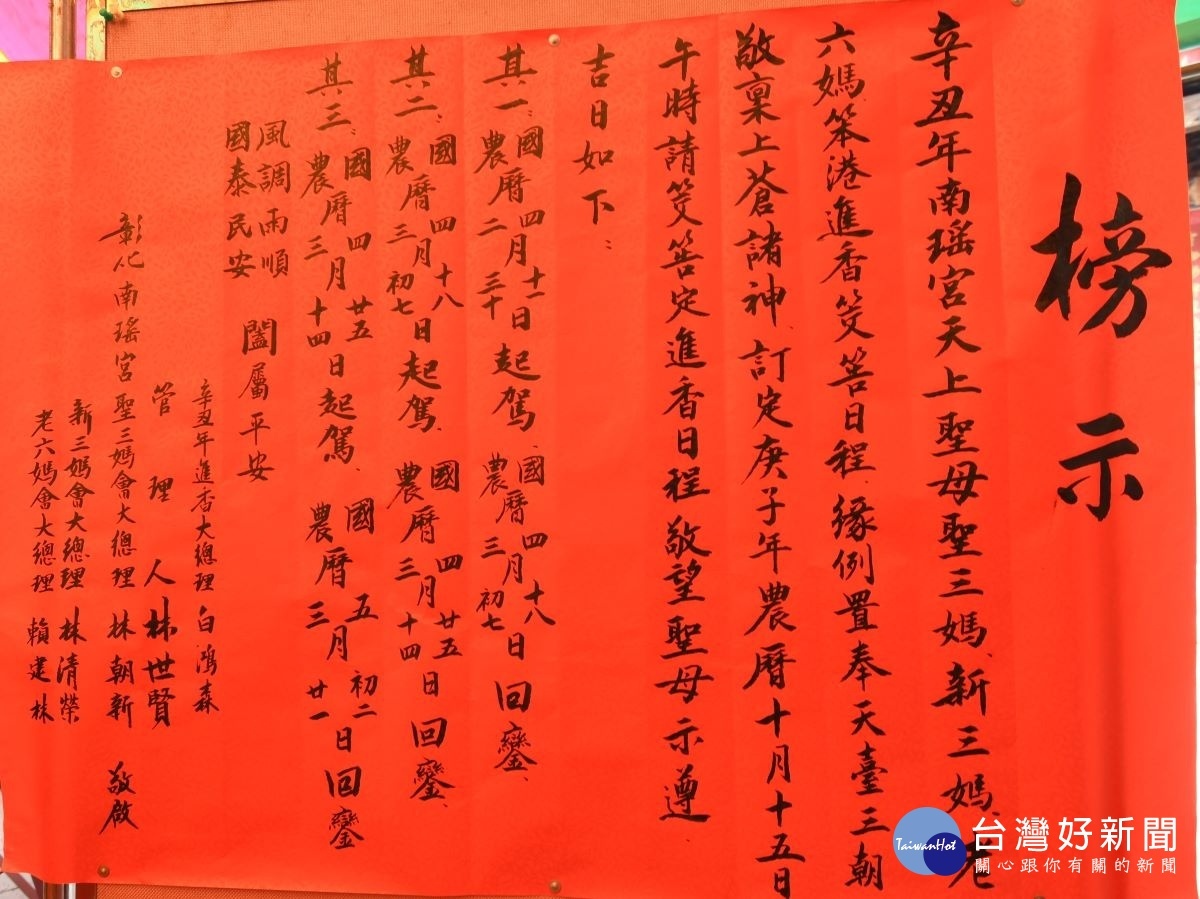 榜示
辛丑年南瑶宮天上聖母聖三媽、新三媽、老
六媽、笨港進香筊筶日程、緣例置奉天臺三朝
敬稟上蒼諸神、訂定庚子年農曆十月十五日
午時請筊筶定進香日程敬望聖母示遵.
吉日如下：
其一：國農曆四月二十一三十日起駕、國農曆四月三十八初七日回鑾、
其二：國農曆四月三十八初七日起駕、國農曆四月三廿五十四日回鑾、
其三：國農曆四月三廿五十四日起駕、國農曆五月三初二廿一日回鑾
風調雨順
國泰民安
闔屬平安
辛丑年進香大總理 白鴻森
管理人 林世賢
彰化南瑶宮聖三媽會大總理 林朝新 敬啟
新三媽會大總理 林清榮
老六媽會大總理 賴建林
TaiwanHot
台灣好新聞
關心跟你有關的新聞